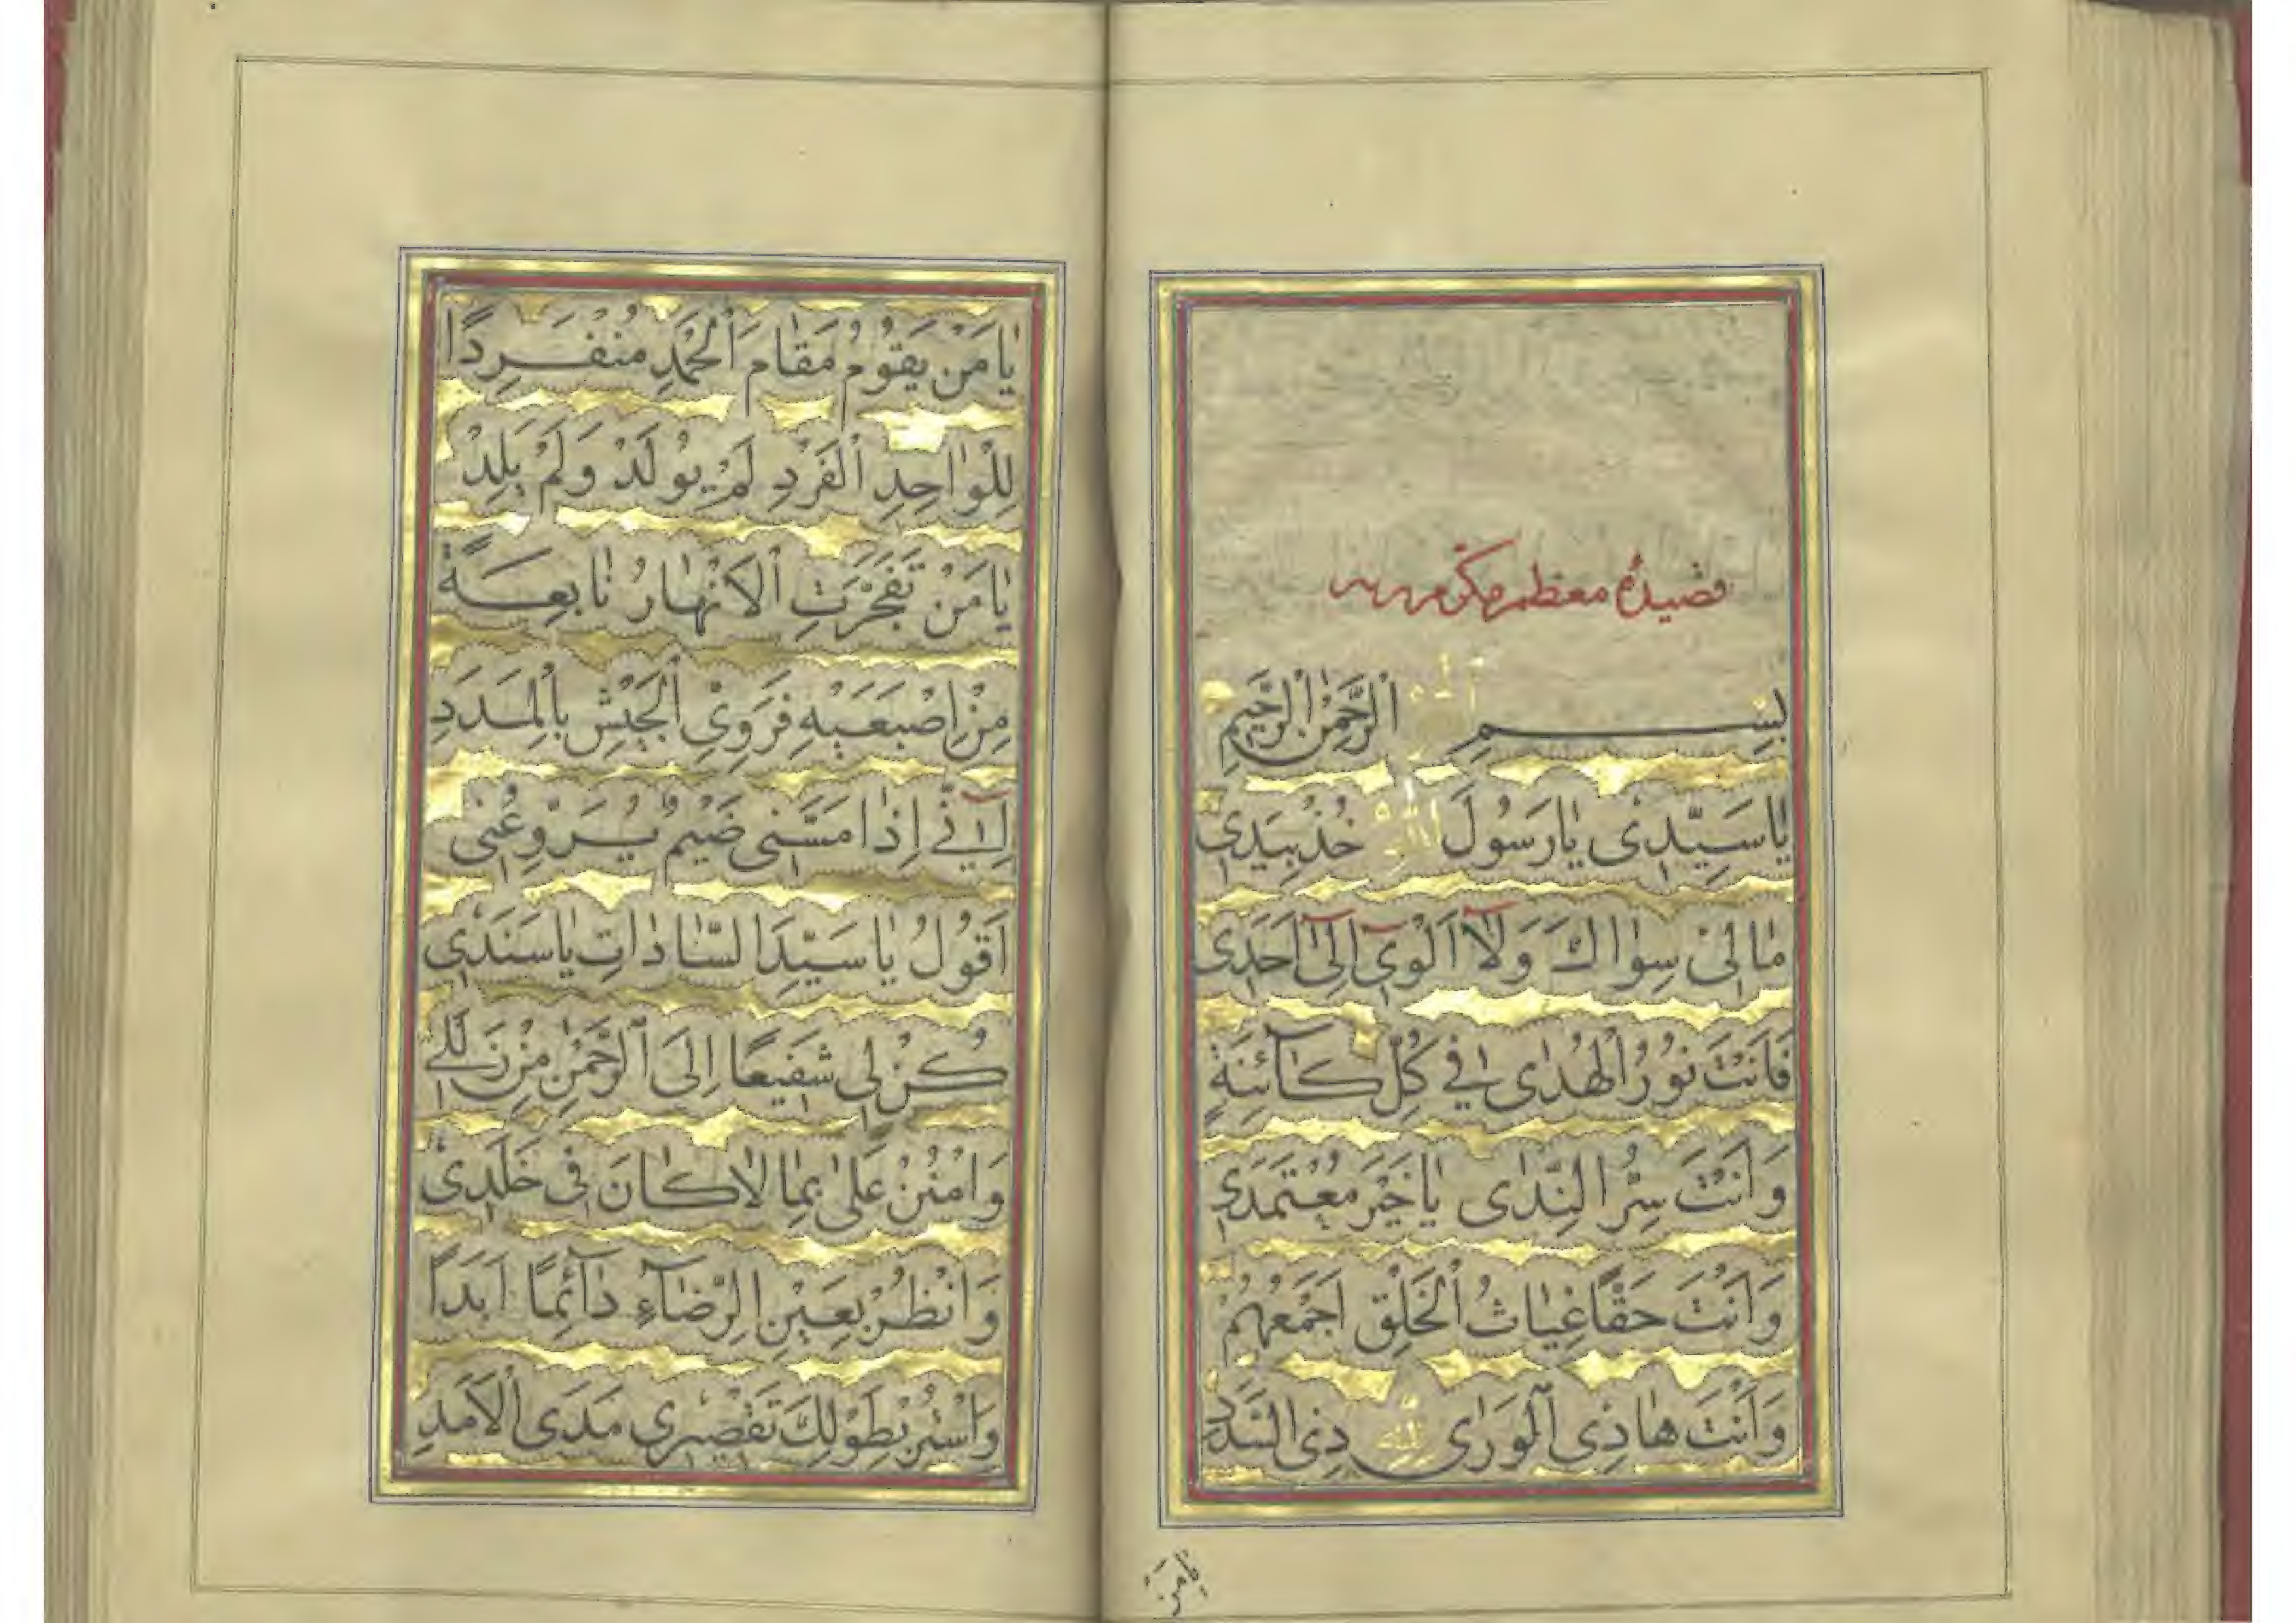 قصیدهٔ معظمه مکرمه
بِسْمِ اللّٰهِ الرَّحْمٰنِ الرَّحِیْمِ
یٰا سَیِّدِیْ یٰا رَسُوْلَ اللّٰهِ خُذْ بِیَدِیْ
مٰا لِیْ سِوٰاكَ وَلَآ اَلْوِیْٓ اِلٰیٓ اَحَدِیْ
فَاَنْتَ نُوْرُ الْهُدٰی فِیْ كُلِّ كَآئِنَةٍ
وَاَنْتَ سِرُّ النِّدٰی یٰا خَیْرَ مُعْتَمَدِیْ
وَاَنْتَ حَقًّا غِیٰاثُ الْخَلْقِ اَجْمَعُهُمْ
وَاَنْتَ هٰادِی الْوَرٰی لِلّٰهِ ذِی السَّدَدِ
یٰا مَنْ
یٰا مَنْ یَقُوْمُ مَقٰامَ الْحَمْدِ مُنْفَرِدًا
لِلْوٰاحِدِ الْفَرْدِ لَمْ یُوْلَدْ وَلَمْ یَلِدْ
یٰا مَنْ تَفَجَّرَتِ الْاَنْهٰارُ نٰابِعَةً
مِنْ اِصْبَعَیْهِ فَرَوِیْ الْجَیْشِ بِالْمَدَدِ
لِاَنِّیْٓ اِذٰا مَسَّنِیْ ضَیْمٌ یُرَوِّعُنِیْ
اَقُوْلُ یٰا سَیِّدَ السّٰادٰاتِ یٰا سَنَدِیْ
كُنْ لِیْ شَفِیْعًا اِلَی الرَّحْمٰنِ مِنْ زَلَلِیْ
وَامْنُنْ عَلَیَّ بِمٰا لٰا كٰانَ فِیْ خَلَدِیْ
وَانْظُرْ بِعَیْنِ الرِّضٰآءِ دٰآئِمًا اَبَدًا
وَاسْتُرْ بِطَوْلِكَ تَقْصِیْرِیْ مَدَی الْاَمَدِ